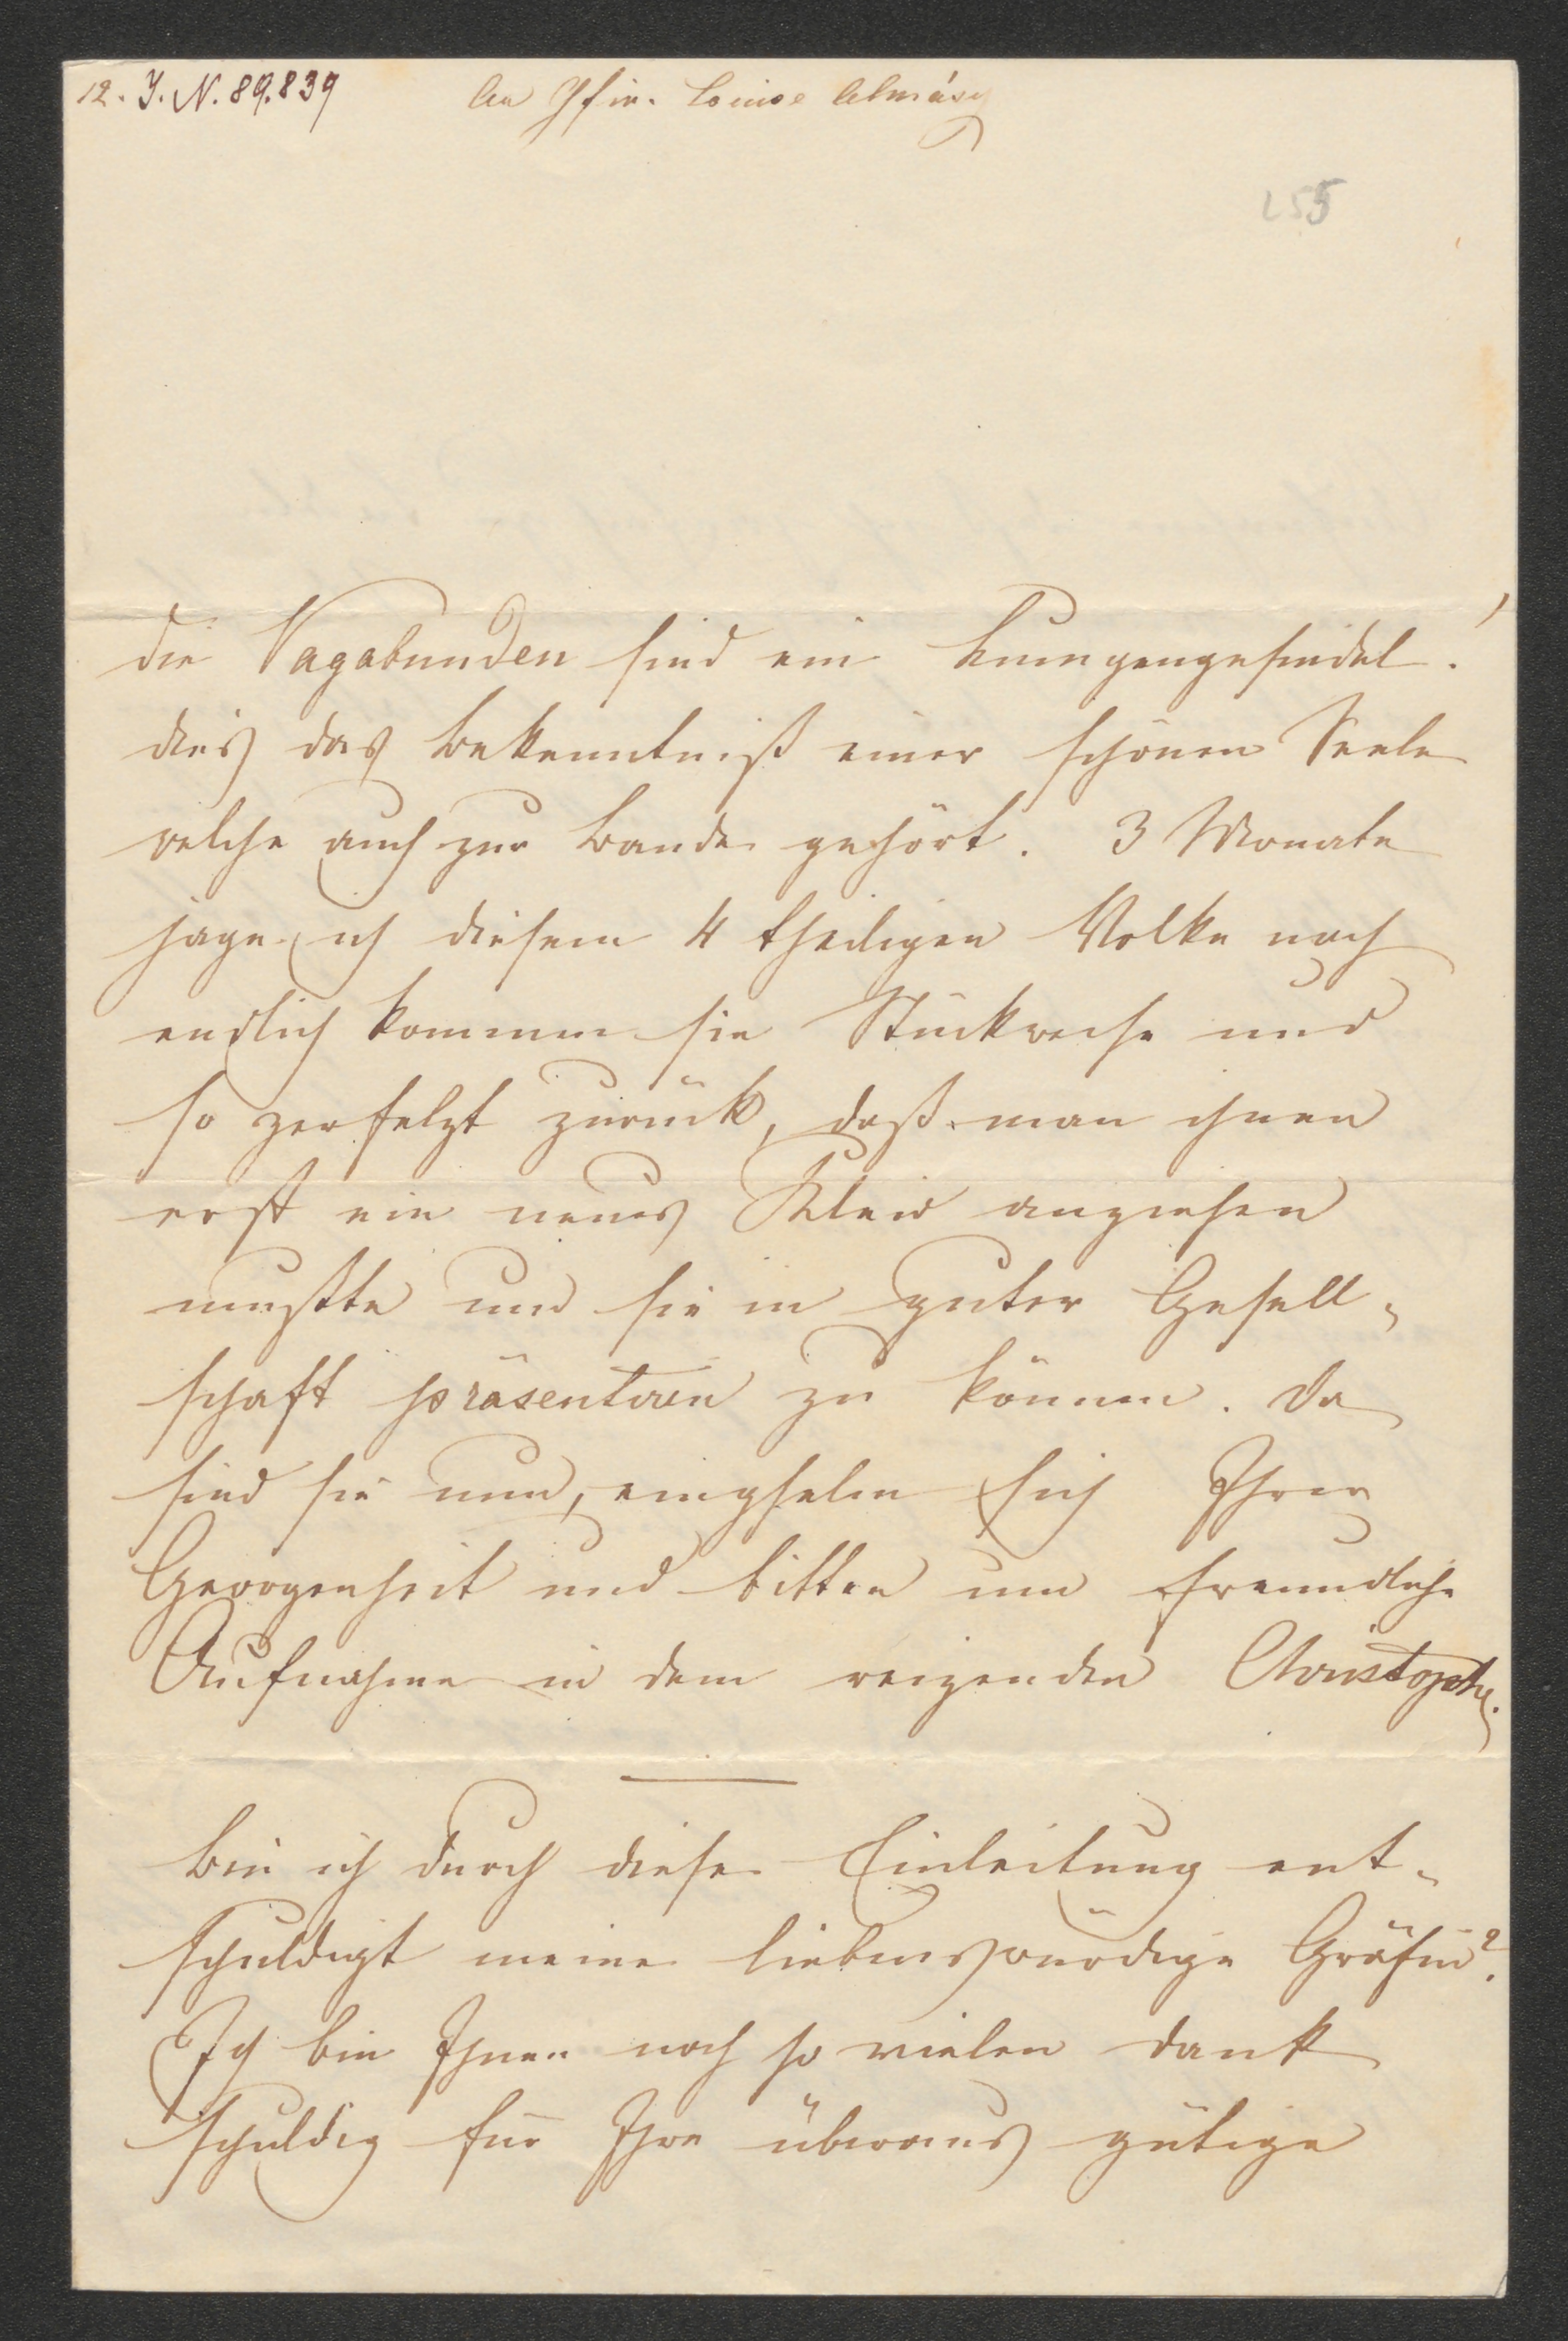 12. J. N. 89.839
An Gfin. Louise Almásy
255
Die Vagabunden sind ein Lumpengesindel!
dies das Bekenntniß einer schönen Seele
welche auch zur Bande gehört. 3 Monate
jage ich diesem 4 theiligen Volke nach
endlich kommen sie Stückweise und
so zerfetzt zurück, daß man ihnen
erst ein neues Kleid anziehen
mußte um sie in guter Gesell-
schaft präsentiren zu können. Da
sind sie nun, empfehlen sich Ihrer
Gewogenheit und bitten um freundliche
Aufnahme in dem reizenden Christoph.
Bin ich durch diese Einleitung ent-
schuldigt meine liebenswürdige Gräfin?
Ich bin Ihnen noch so vielen Dank
schuldig für Ihre überaus gütige